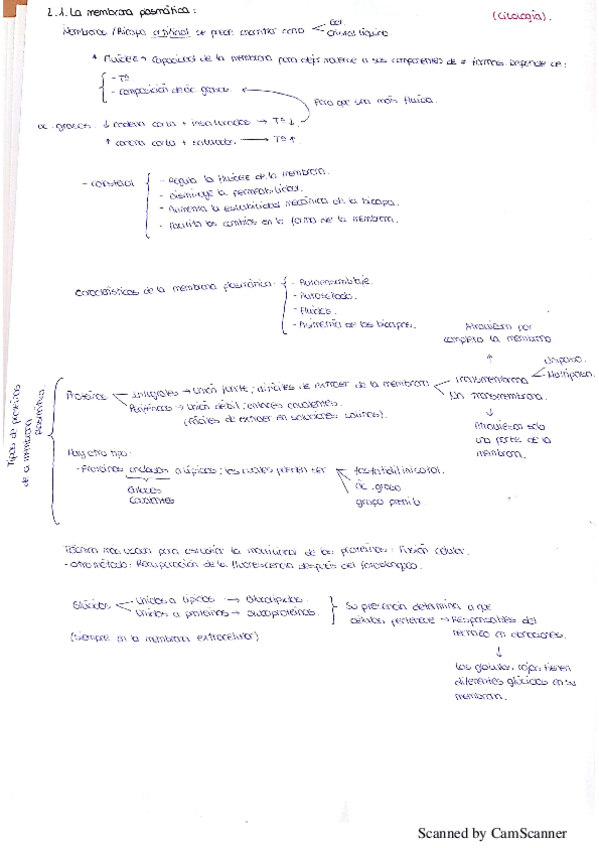 2.1. La membrana plasmática:
(Citología).
Membrana / Bicapa artificial se puede encontrar como
Gel.
Cristal líquido
* Fluidez → Capacidad de la membrana para dejar moverse a sus componentes de ≠ formas. Depende de:
- Tª
- composición de ác. grasos
Para que sea más fluida.
ác. grasos: ↓ cadena corta + insaturados → Tª ↓
↑ cadena corta + saturados → Tª ↑.
- colesterol
- Regula la fluidez de la membrana.
- Disminuye la permeabilidad.
- Aumenta la estabilidad mecánica de la bicapa.
- Facilita los cambios en la forma de la membrana.
Características de la membrana plasmática:
- Autoensamblaje.
- Autosellado.
- Fluidez.
- Asimetría de las bicapas.
Atraviesan por
completo la membrana
Tipos de proteínas
de la membrana
plasmática
Proteínas
Integrales → Unión fuerte; difíciles de extraer de la membrana
Transmembrana
Unipaso.
Multipaso.
No transmembrana.
Periféricas → Unión débil; enlaces covalentes.
(fáciles de extraer en soluciones salinas).
Atraviesa solo
una parte de la
membrana.
Hay otro tipo:
- Proteínas ancladas a lípidos; los cuales pueden ser
fosfatidilinositol.
ác. graso
grupo prenilo
enlaces
covalentes
Técnica más usada para estudiar la movilidad de las proteínas: Fusión celular.
- otro método: Recuperación de la fluorescencia después del
Glúcidos
Unidos a lípidos → Glucolípidos.
Unidos a proteínas → Glucoproteínas.
(siempre en la membrana extracelular)
Su presencia determina a que
células pertenece → Responsables del
rechazo en donaciones.
Los glóbulos rojos tienen
diferentes glúcidos en su
membrana.
Scanned by CamScanner